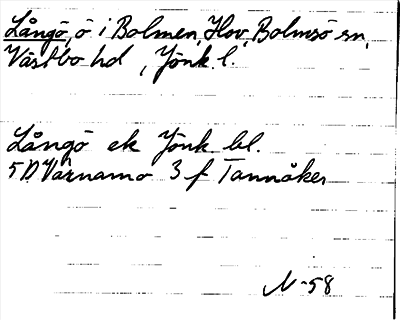 Långö, ö i Bolmen, Hov, Bolmsö sn,
Västbo hd, Jönk. l.
Långö ek Jönk bl.
5D Värnamo 3 f Tannåker
N-58